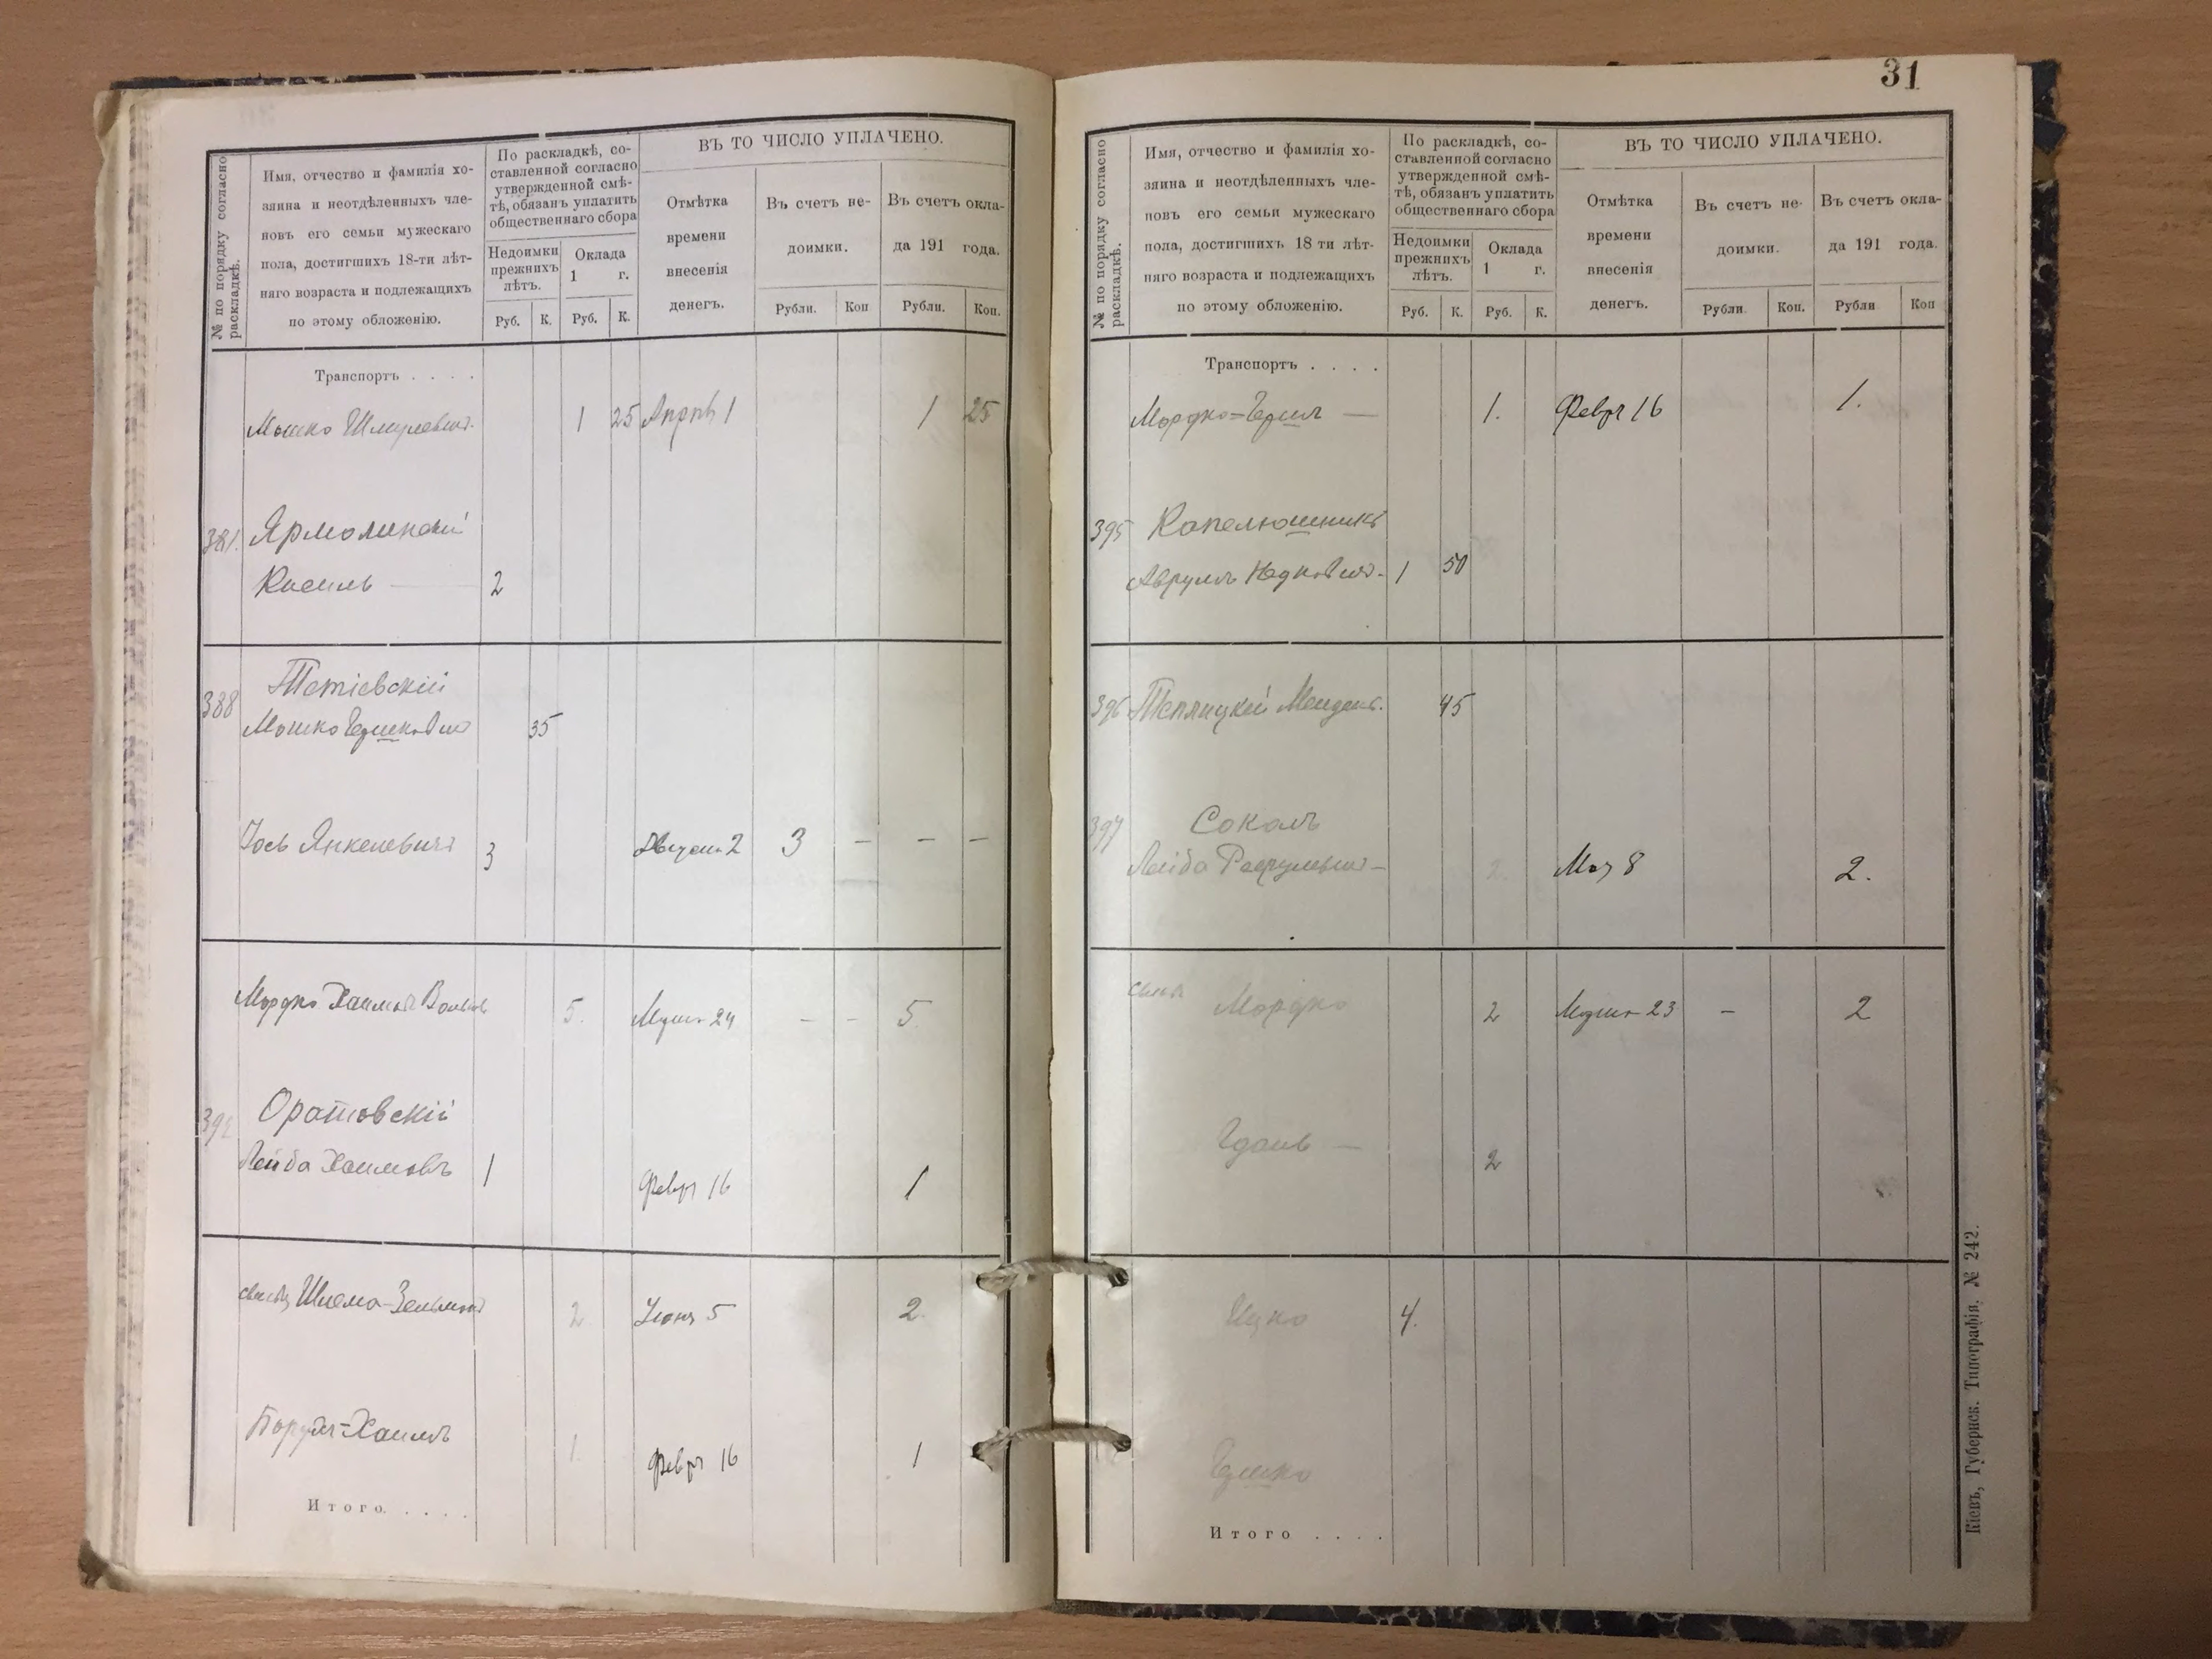 № по порядку согласно
раскладкѣ.
Имя, отчество и фамилія хо-
зяина и неотдѣленныхъ чле-
новъ его семьи мужескаго
пола, достигшихъ 18-ти лѣт-
няго возраста и подлежащихъ
по этому обложенію.
По раскладкѣ, со-
ставленной согласно
утвержденной смѣ-
тѣ, обязанъ уплатить
общественнаго сбора
Недоимки
прежнихъ
лѣтъ.
Оклада
1 г.
Руб. К. Руб. К.
ВЪ ТО ЧИСЛО УПЛАЧЕНО.
Отмѣтка
времени
внесенія
денегъ.
Въ счетъ не-
доимки.
Въ счетъ окла-
да 191 года.
Рубли. Коп Рубли. Коп.
Транспортъ . . . .
Мошко Шмулевичъ. 1 25 Апрѣ 1 1 25
381. Ярмолинскій
Касиль — 2
388 Тетіевскій
Мошко Гершковичъ 35
Іось Янкелевичъ 3 2 3 — — —
Мордко Хаимовъ 5. 24 - - 5.
Оратовскій
Лейба Хаимовъ 1 Февр 16 1
Шлема-Зельманъ 2 Іюня 5 2.
Хаимъ 1. Февр 16 1
Итого. . . . .
31
№ по порядку согласно
раскладкѣ.
Имя, отчество и фамилія хо-
зяина и неотдѣленныхъ чле-
новъ его семьи мужескаго
пола, достигшихъ 18 ти лѣт-
няго возраста и подлежащихъ
по этому обложенію.
По раскладкѣ, со-
ставленной согласно
утвержденной смѣ-
тѣ, обязанъ уплатить
общественнаго сбора
Недоимки
прежнихъ
лѣтъ.
Оклада
1 г.
Руб. К. Руб. К.
ВЪ ТО ЧИСЛО УПЛАЧЕНО.
Отмѣтка
времени
внесенія
денегъ.
Въ счетъ не-
доимки.
Въ счетъ окла-
да 191 года.
Рубли Коп. Рубли Коп
Транспортъ . . . .
Мордко=Гершъ — 1. Февр 16 1.
395 Капелюшникъ
Аврумъ 1 50
396 Теплицкій 45
397 Соколъ
Лейба — 2. Мая 8 2.
сынъ Мордко 2 23 - 2
— 2
Ицко 4.
Гершко
Итого . . . .
Кіевъ, Губернск. Типографія. № 242.